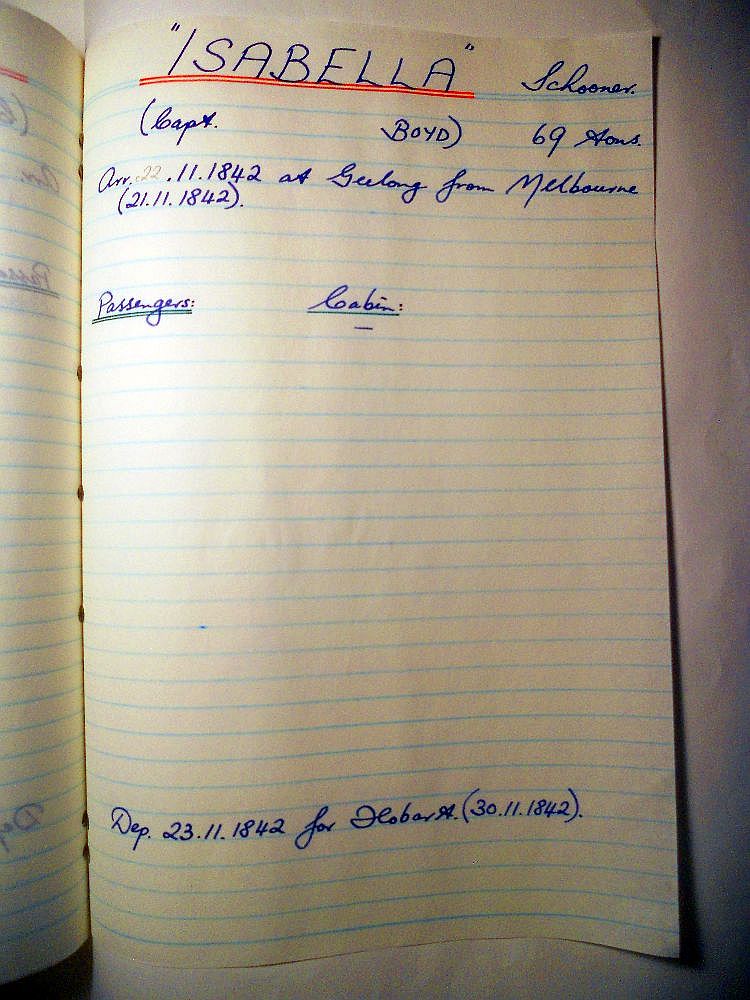 "ISABELLA" Schooner.
(Capt. BOYD) 69 Tons.
Arr. 22.11.1842 at Geelong from Melbourne
(21.11.1842).
Passengers: Cabin:
—
Dep. 23.11.1842 for Hobart. (30.11.1842).